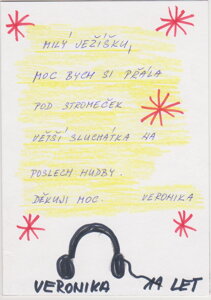 MILÝ JEŽÍŠKU,
MOC BYCH SI PŘÁLA
POD STROMEČEK
VĚTŠÍ SLUCHÁTKA NA
POSLECH HUDBY.
DĚKUJI MOC. VERONIKA
VERONIKA 14 LET